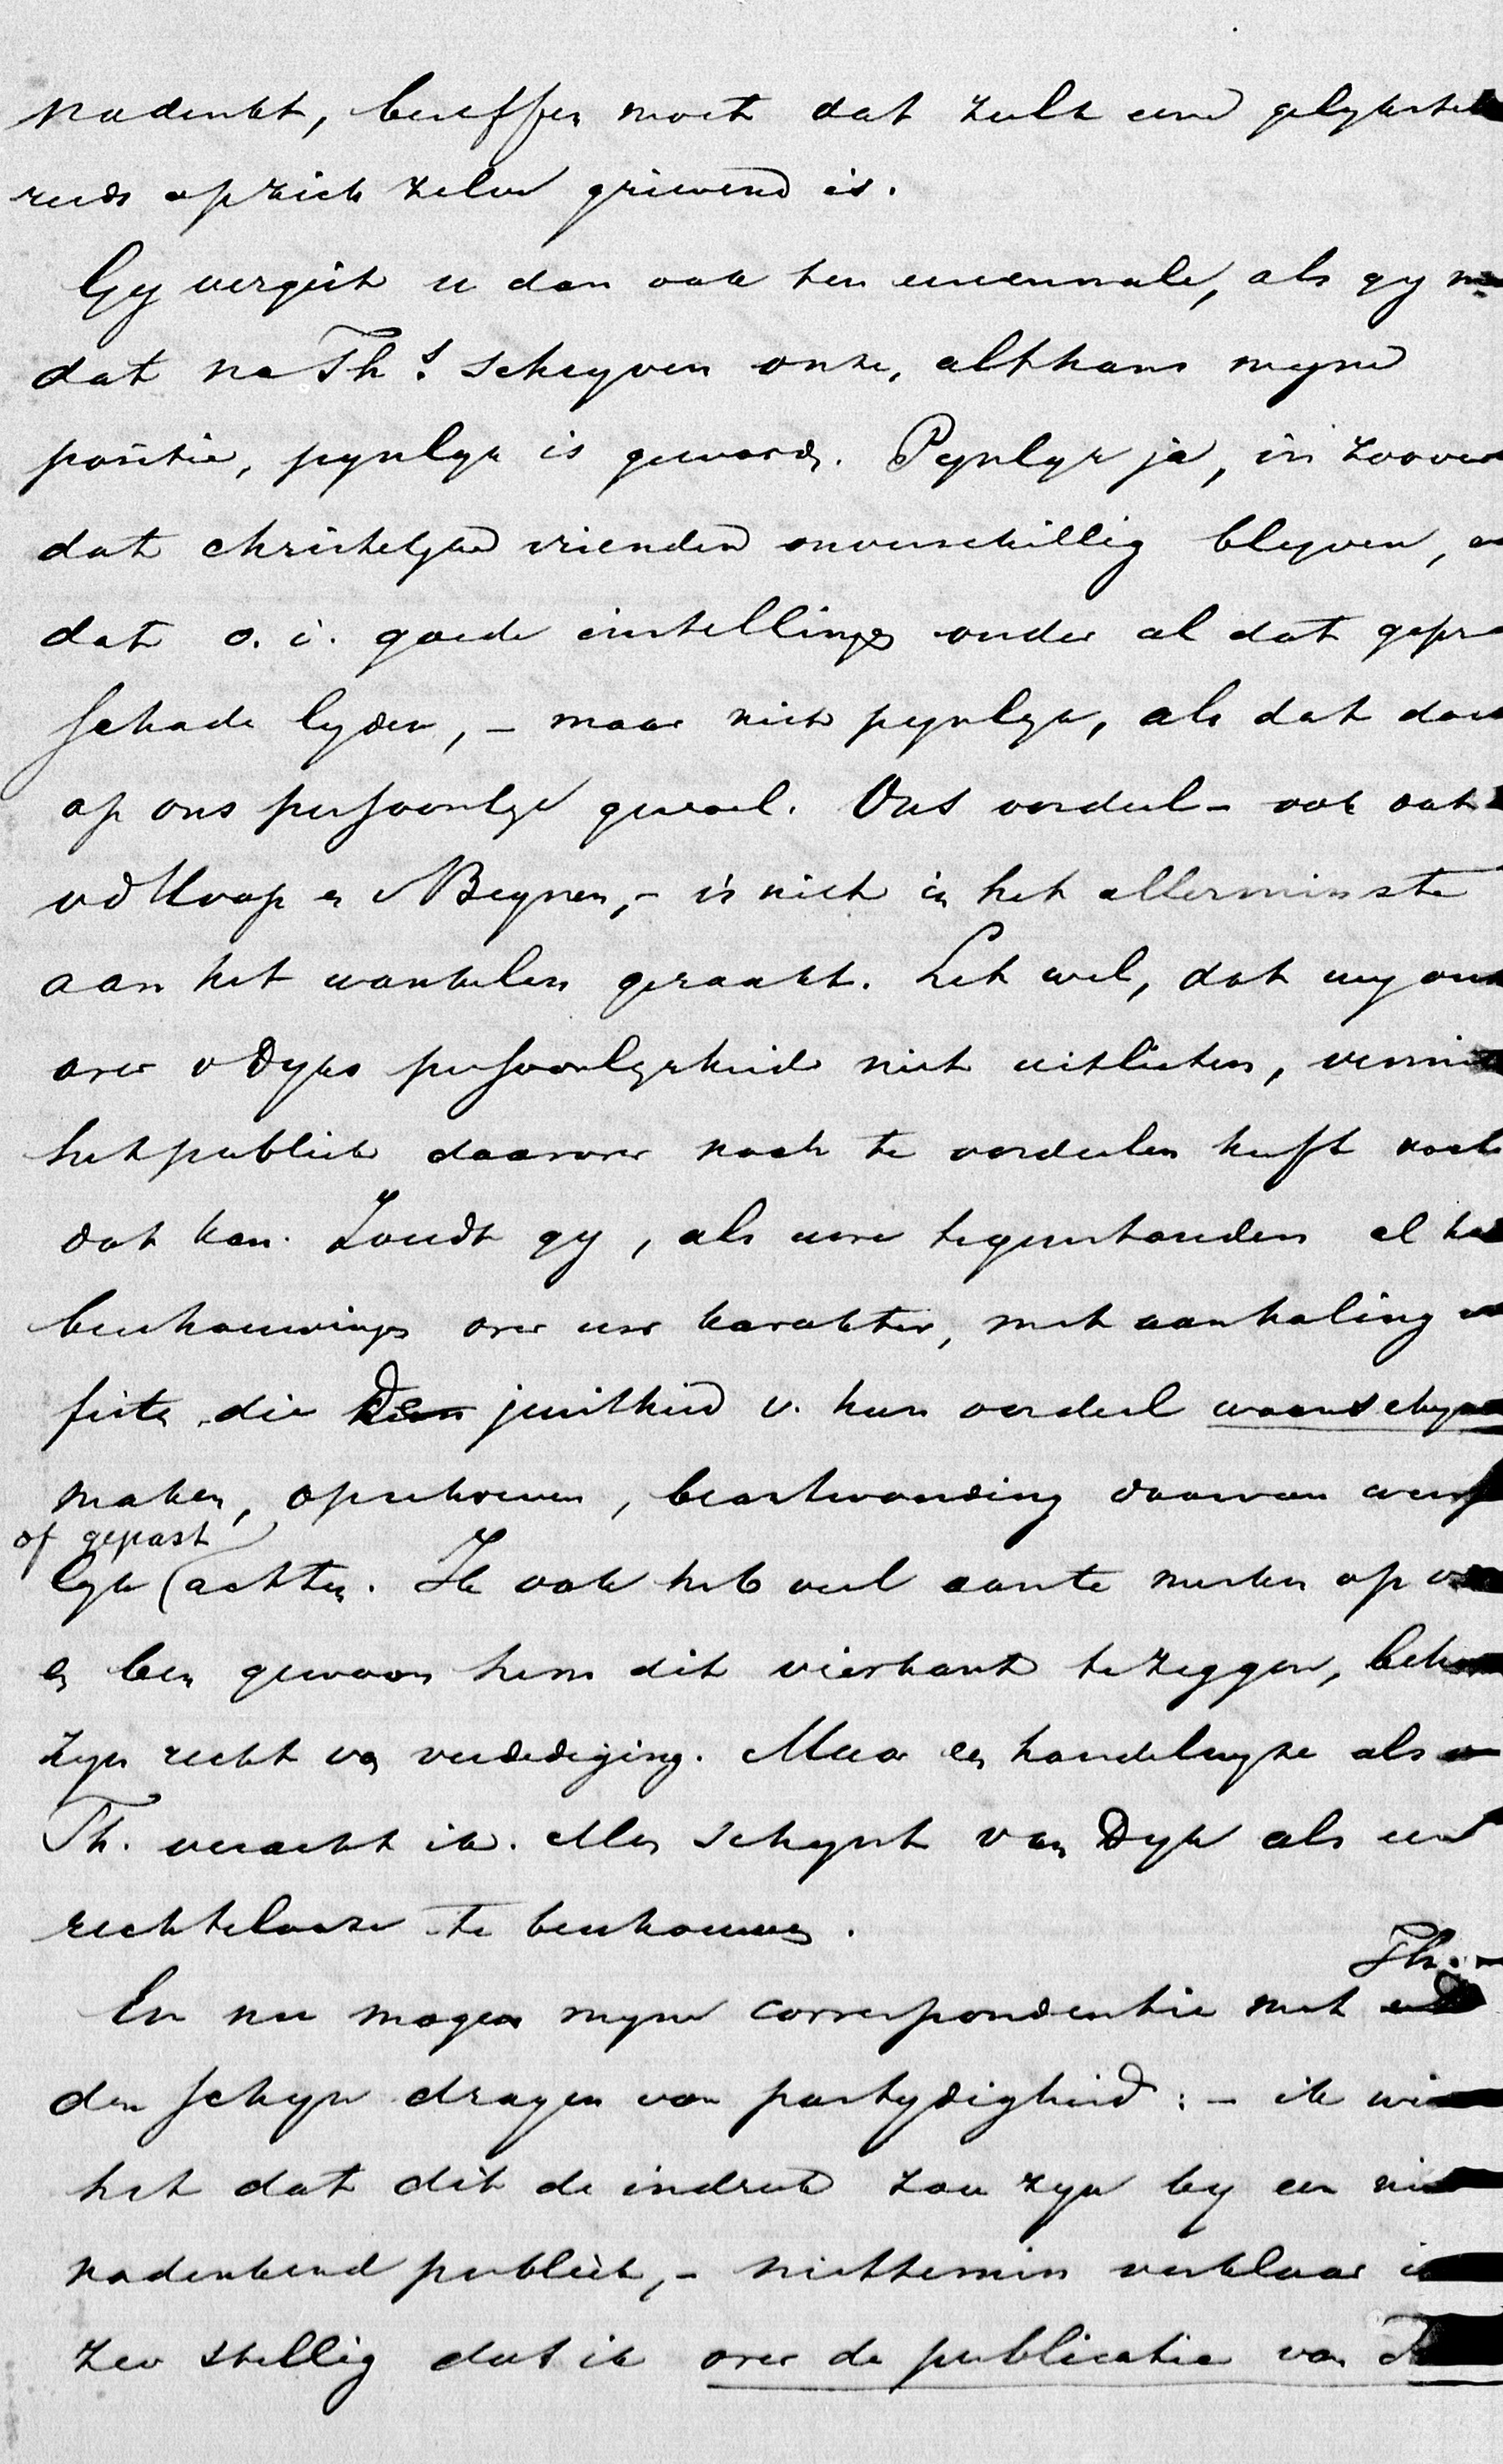 nadenkt, beseffen moet dat zulk eene gelykstel
reeds op zich zelve grievend is.
Gy vergist u dan ook ten eenenmale, als gy
dat na Th.s schryven onze, althans myne
positie, pynlyk is geword. Pynlyk ja, in zoover
dat christelyke vrienden onverschillig blyven,
dat o. i. goede instellingen onder al dat gepr
schade lyden, – maar niet pynlyk, als dat
op ons persoonlyk gevoel. Ons oordeel – ook
vd Hoop en Beynen, – is niet in het allerminste
aan het wankelen geraakt. Let wel, dat wy ons
over v Dyks persoonlykheid niet uitlieten,
het publiek daarover noch te oordeelen heeft noch
dat kan. Zoudt gy, als uwe tegenstanders al
beschouwingen over uw karakter, met aanhaling
feiten die de juistheid v. hun oordeel waarschyn
maken, opschreven, beantwoording daarvan wensch
of gepast
lyk (achten. Ik ook heb veel aan te merken op
en ben gewoon hem dit vierkant te zeggen,
zyn recht van verdediging. Maar een handelwyze als
Th. veracht ik. Men schynt van Dyk als een
rechtelooze te beschouwen.
Th.
En nu mogen myne correspondentie met
den schyn dragen van partydigheid: – ik
het dat dit de indruk zou zyn by een
nadenkend publiek, – niettemin verklaar
zeer stellig dat ik over de publicatie van